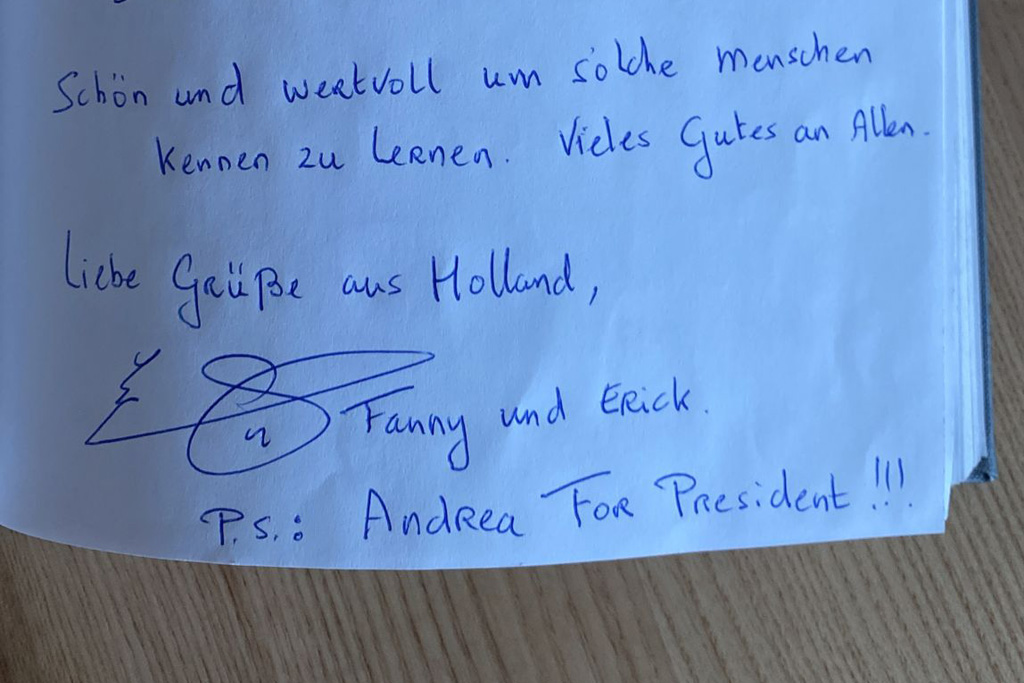 Schön und wertvoll um solche menschen
kennen zu lernen. Vieles Gutes an Allen.
Liebe Grüße aus Holland,
Fanny und Erick.
P.S.: Andrea For President !!!